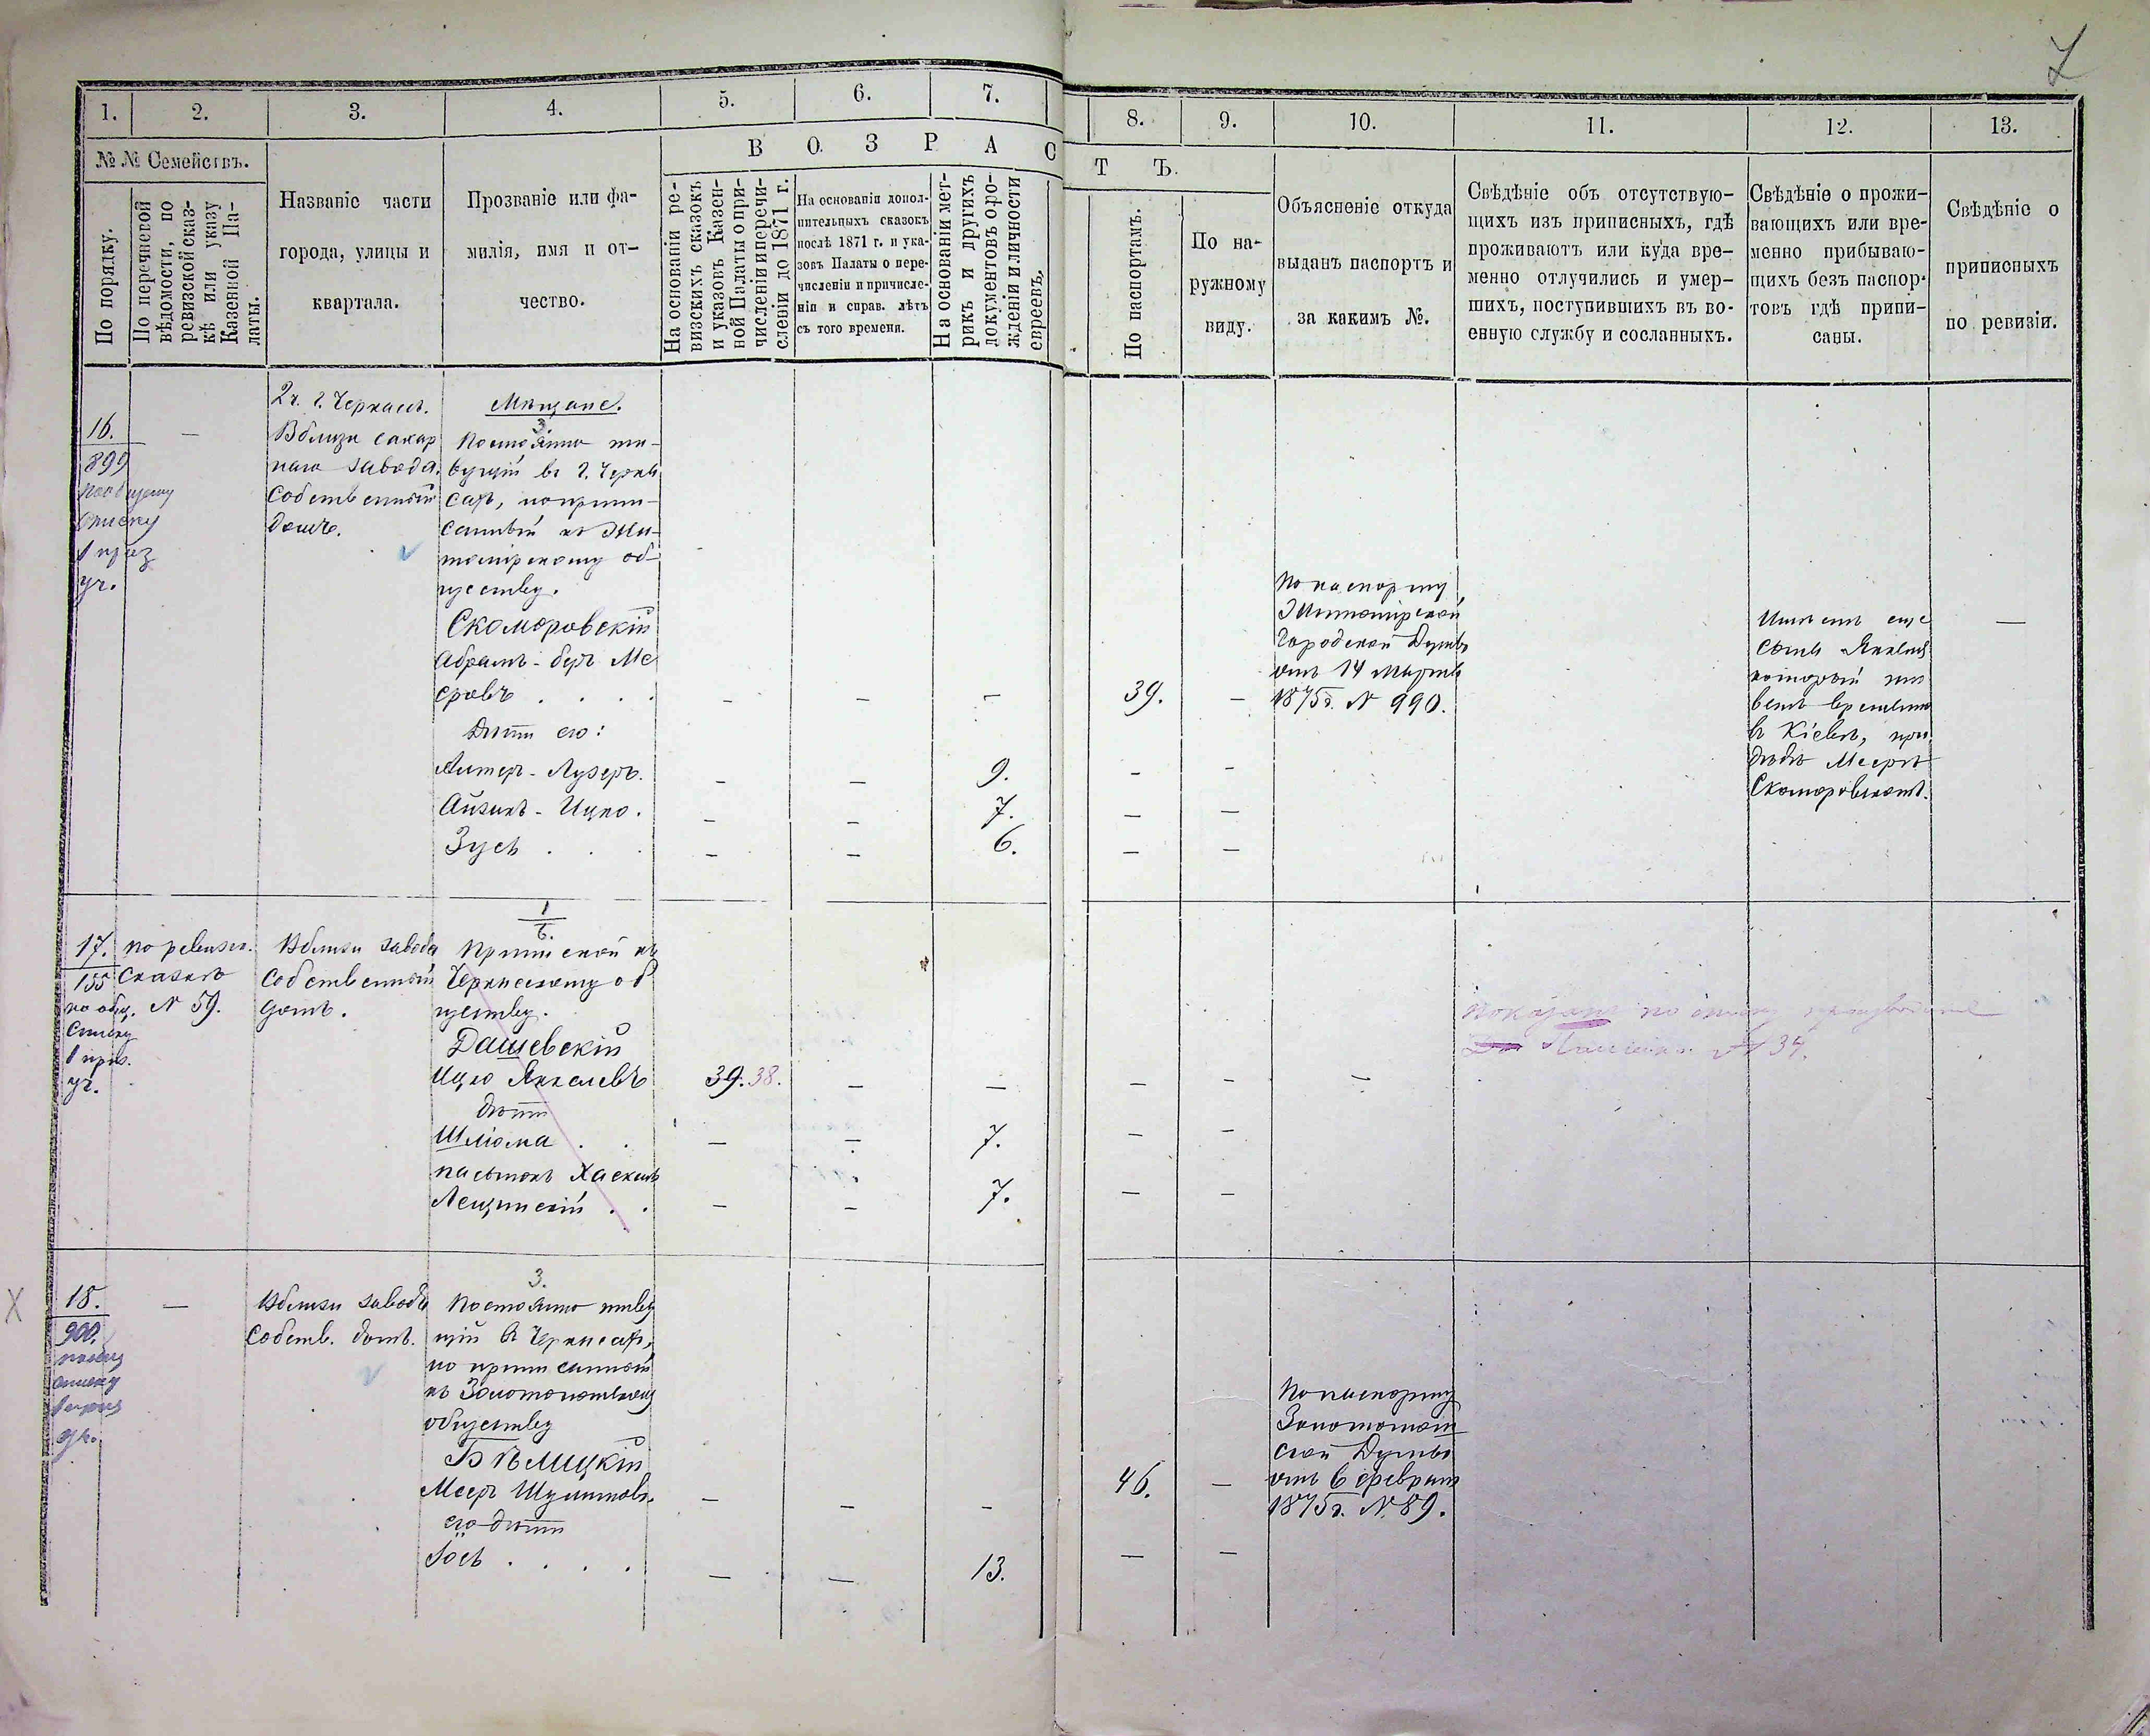 7
1. 2. 3. 4. 5. 6. 7. 8. 9. 10. 11. 12. 13.
№№ Семействъ.
В О З Р А С Т Ъ.
По порядку.
По перечневой
вѣдомости, по
ревизской сказ-
кѣ или указу
Казенной Па-
латы.
Названіе части
города, улицы и
квартала.
Прозваніе или фа-
милія, имя и от-
чество.
На основаніи ре-
визскихъ сказокъ
и указовъ Казен-
ной Палаты о при-
численіи и перечи-
слевіи до 1871 г.
На основаніи допол-
нительныхъ сказокъ
послѣ 1871 г. и ука-
зовъ Палаты о пере-
численіи и причисле-
ніи и справ. лѣтъ
съ того времени.
На основаніи мет-
рикъ и другихъ
документовъ о ро-
жденіи и личности
евреевъ.
По паспортамъ.
По на-
ружному
виду.
Объясненіе откуда
выданъ паспортъ и
за какимъ №.
Свѣдѣніе объ отсутствую-
щихъ изъ приписныхъ, гдѣ
проживаютъ или куда вре-
менно отлучились и умер-
шихъ, поступившихъ въ во-
енную службу и сосланныхъ.
Свѣдѣніе о прожи-
вающихъ или вре-
менно прибываю-
щихъ безъ паспор-
товъ гдѣ припи-
саны.
Свѣдѣніе о
приписныхъ
по ревизіи.
16.
899
по общему
списку
1 приз
уч.
—
2 ч. г. Черкасъ.
Вблизи сахар
наго завода.
Собственный
домъ.
Мѣщане.
3.
Постоянно жи-
вущій въ г. Черка
сахъ, но припи-
санный къ Жи-
томірскому об-
ществу.
Скоморовскій
Абрамъ-Беръ Ме
еровъ . . . . — — — 39. —
Дѣти его:
Алтеръ-Лузеръ. — — 9. — —
Айзикъ-Ицко. — — 7. — —
Зусь . . . — — 6. — —
По паспорту
Житомірской
Городской Думы
отъ 14 Марта
1875 г. № 990.
Имѣетъ еще
сына Янкеля
который жи
ветъ временно
въ Кіевѣ, при
дѣдѣ Меерѣ
Скоморовскомъ.
—
17.
155
по общ.
списку
1 приз.
уч.
по ревизск.
сказкѣ
№ 59.
Вблизи завода
Собственный
домъ.
1
6.
Приписной къ
Черкасскому об
ществу.
Дашевскій
Ицко Янкелевъ 39. 38. — — — — —
дѣти
Шліома . . — — 7. — —
пасынокъ Хаскель
Лещинскій . . — — 7. — —
Показанъ по списку
№ 34.
18.
900.
по общ
списку
1 приз
уч.
—
Вблизи завода
Собств. домъ.
3.
Постоянно живу
щій въ Черкасахъ,
но приписанный
къ Золотоношскому
обществу
Бѣлицкій
Мееръ Шулимовъ. — — — 46. —
его дѣти
Іось . . . . — — 13. — —
По паспорту
Золотонош
ской Думы
отъ 6 февраля
1875 г. № 89.